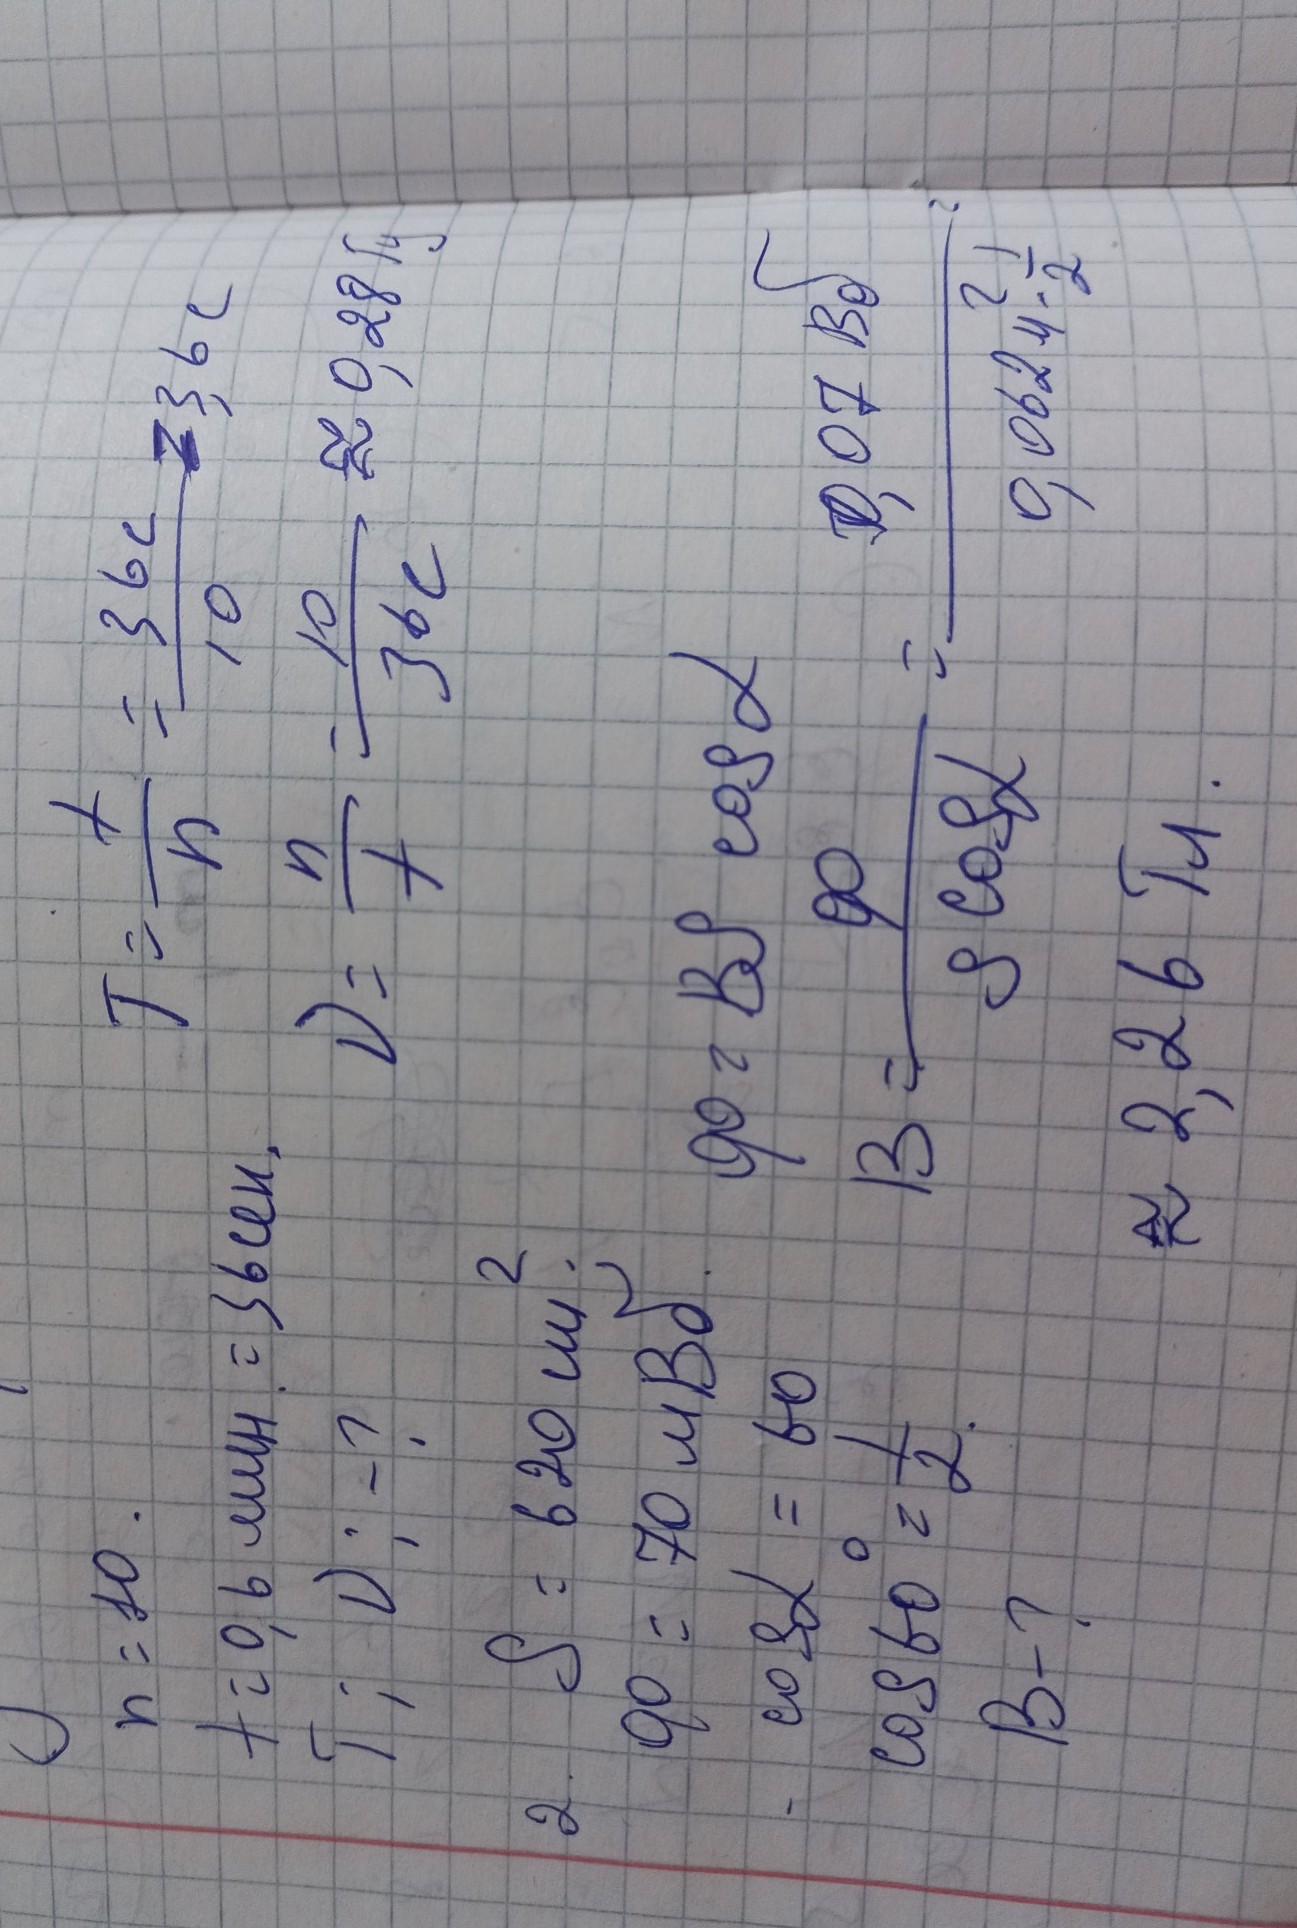 n = 10.
t = 0,6 мин. = 36 сек,
T; ν; - ?
T = t/n = 36с/10 = 3,6с
ν = n/t = 10/36с ≈ 0,28 Гц
2. S = 620 см².
φ = 70 мВб.
cosα = 60
cos60° = 1/2.
B - ?
φ = BS cosα
B = φ/S cosα = 0,07 Вб/0,062 м² · 1/2 =
≈ 2,26 Тл.